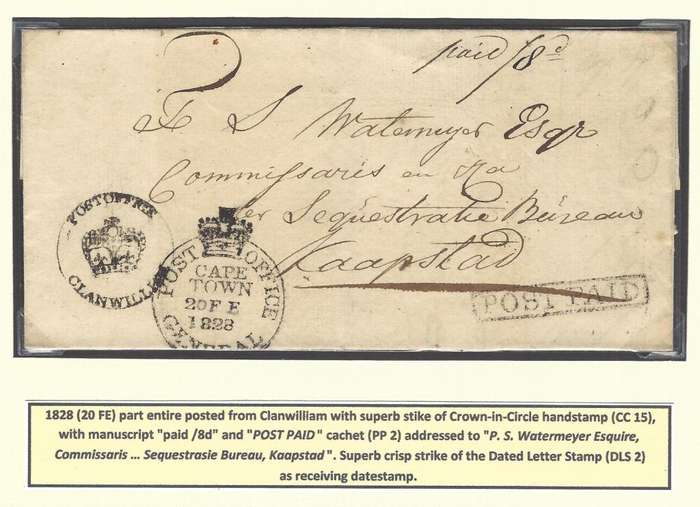 paid /8d
F. S. Watermeyer Esqr
Commissaris en
der Sequestratie Bureau
Kaapstad
POST OFFICE
CLANWILLI
POST OFFICE
CAPE
TOWN
20 F E
1828
GENERAL
POST PAID
1828 (20 FE) part entire posted from Clanwilliam with superb stike of Crown-in-Circle handstamp (CC 15),
with manuscript "paid /8d" and "POST PAID" cachet (PP 2) addressed to "P. S. Watermeyer Esquire,
Commissaris ... Sequestrasie Bureau, Kaapstad". Superb crisp strike of the Dated Letter Stamp (DLS 2)
as receiving datestamp.